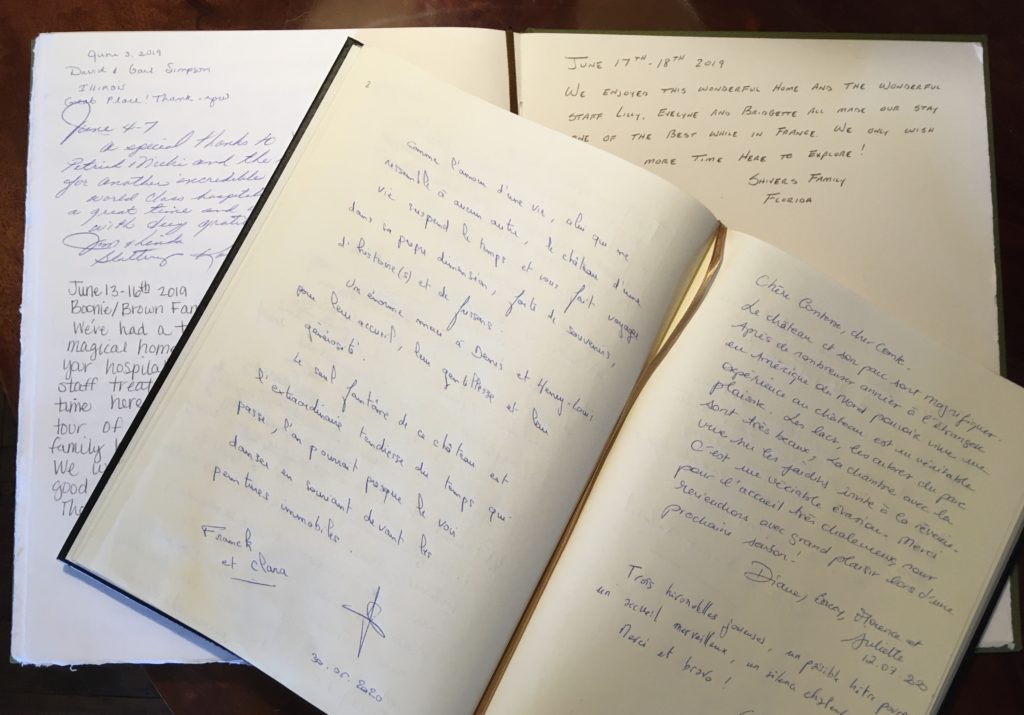 June 3, 2019
David & Gail Simpson
Illinois
Great Place! Thank-you
June 4-7
a special thanks to
Patrick, Nicki and the
for another incredible
world class hospita
a great time and
with deep grati
Jim & Linda
June 13-16th 2019
Boonie/Brown Fam
We've had a t
magical home
your hospita
staff treat
time here
tour of
family
We w
good
Tha
June 17th-18th 2019
We enjoyed this wonderful home and the wonderful
staff Lilly, Evelyne and Bridgette all made our stay
one of the best while in France. We only wish
more time here to explore!
Shivers Family
Florida
2
Comme l'amour d'une vie, celui qui ne
ressemble à aucun autre, le château d'une
vie suspend le temps et vous fait voyager
dans sa propre dimension, faite de souvenirs,
d'histoire(s) et de frissons.
Un énorme merci à Denis et Henry-Louis
pour leur accueil, leur gentillesse et leur
générosité.
Le seul fantôme de ce château est
l'extraordinaire tendresse du temps qui
passe, l'on pourrait presque le voir
danser en souriant devant les
peintures immobiles.
Franck
et Clara
30.05.2020
Chère Comtesse, cher Comte
Le château et son parc sont magnifiques.
Après de nombreuses années à l'étranger
en Amérique du Nord pouvoir vivre une
expérience au château est un véritable
plaisir. Les lacs, les arbres du parc
sont très beaux, la chambre avec la
vue sur les jardins invite à la rêverie.
C'est une véritable évasion. Merci
pour l'accueil très chaleureux, nous
reviendrons avec grand plaisir lors d'une
prochaine saison!
Diane, Florence et
Juliette
12.07.2020
Trois hirondelles joyeuses, un paisible hêtre pourpre
un accueil merveilleux, un silence
Merci et bravo!